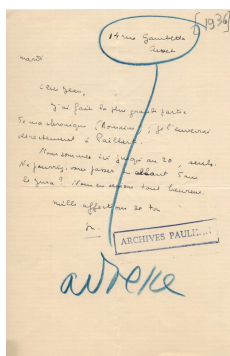 [1936]
14 rue Gambetta
mardi
Cher Jean,
J'ai fait la plus grande partie
de ma chronique (Romains), je l'enverrai
directement à Paillart.
Nous sommes ici jusqu'au 20, seuls.
Ne pourriez-vous passer en allant dans
le Jura ? Nous en serions tout heureux.
Mille affections de ton
M.
ARCHIVES PAULHAN